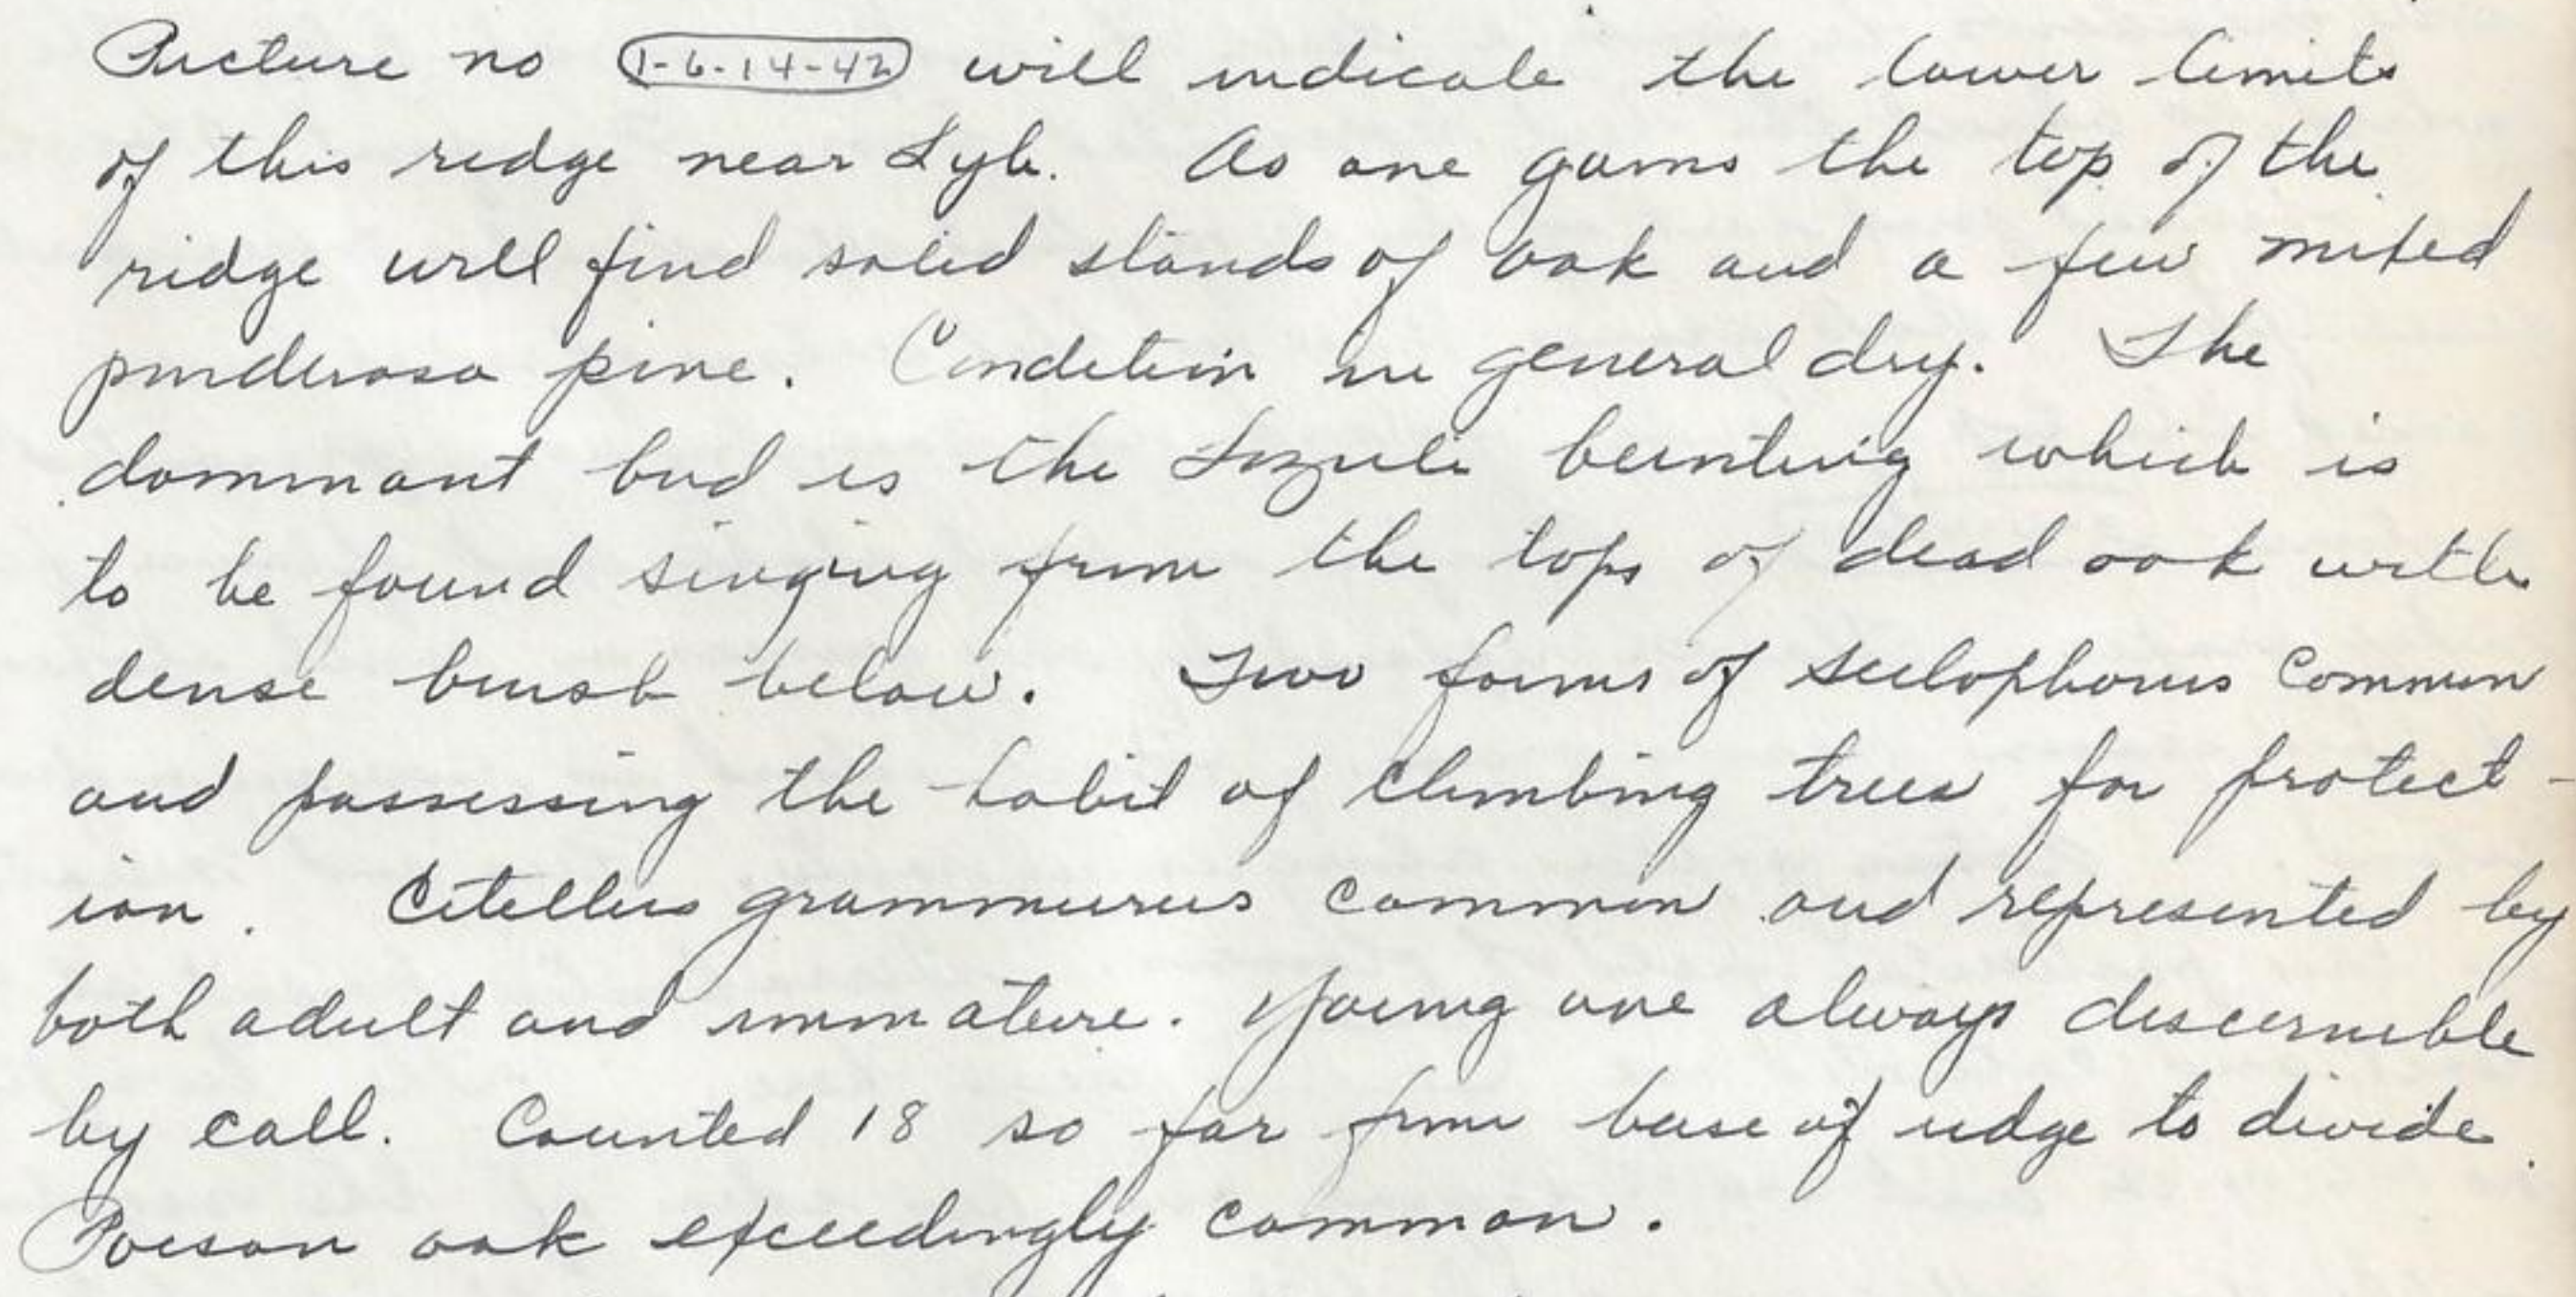 Picture no 1-6-14-42 will indicate the lower limits
of this ridge near Lyle. As one gains the top of the
ridge will find solid stands of oak and a few mixed
ponderosa pine. Condition in general dry. The
dominant bird is the Lazuli bunting which is
to be found singing from the tops of dead oak with
dense brush below. Two forms of scelophorus common
and possessing the habit of climbing trees for protect-
ion. Citellus grammurus common and represented by
both adult and immature. Young are always discernible
by call. Counted 18 so far from base of ridge to divide.
Poison oak exceedingly common.